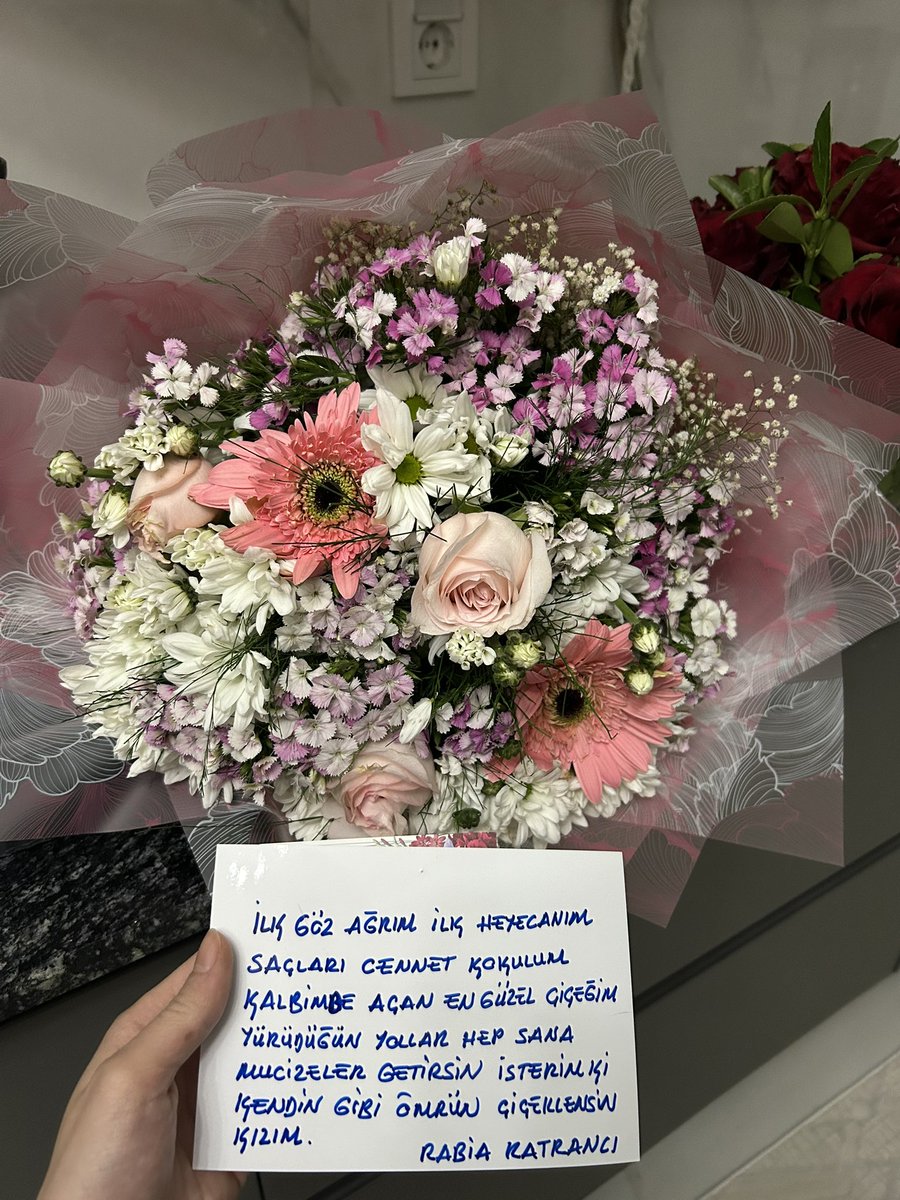 İLK GÖZ AĞRIM İLK HEYECANIM
SAÇLARI CENNET KOKULUM
KALBİMDE AÇAN EN GÜZEL ÇİÇEĞİM
YÜRÜDÜĞÜN YOLLAR HEP SANA
MUCİZELER GETİRSİN İSTERİM Kİ
KENDİN GİBİ ÖMRÜN ÇİÇEKLENSİN
KIZIM.
RABİA KATRANCI